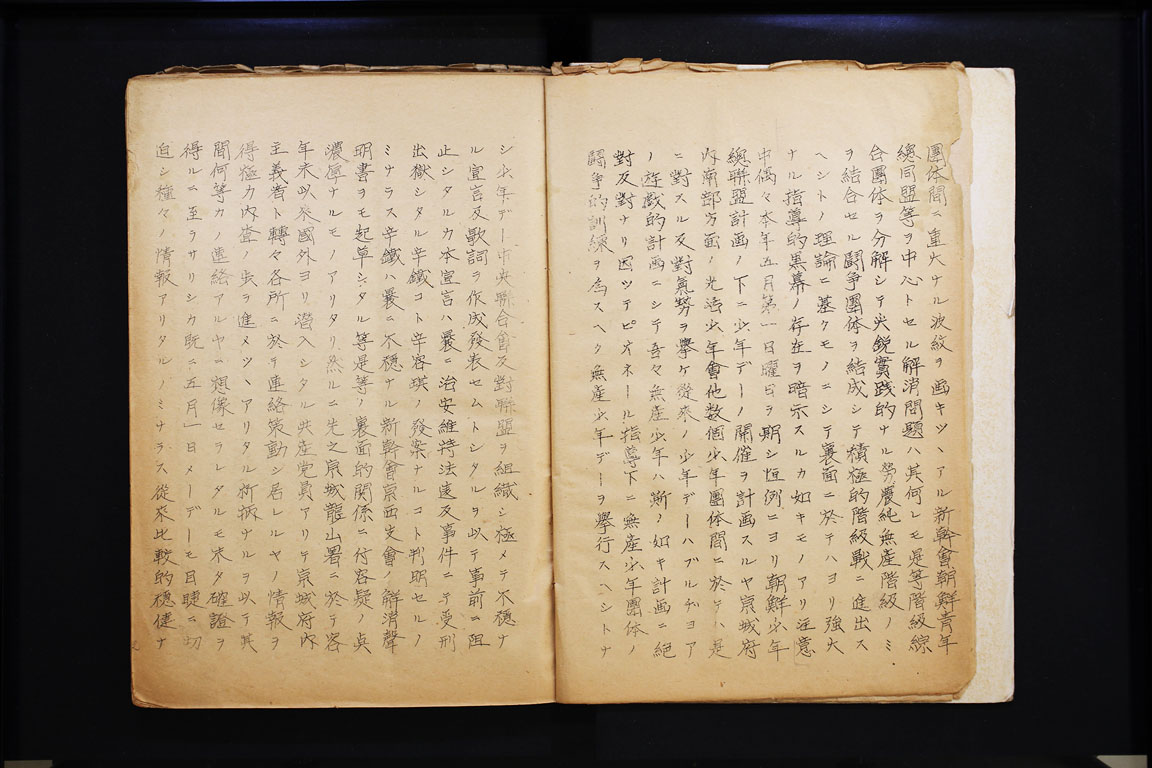 團体間ニ重大ナル波紋ヲ画キツヽアル新幹會朝鮮青年
總同盟等ヲ中心トセル解消問題ハ其何レモ是等階級綜
合團体ヲ分解シテ尖鋭實践的ナル勞農純無產階級ノミ
ヲ結合セル鬪争團体ヲ結成シテ積極的階級戰ニ進出ス
ヘシトノ理論ニ基クモノニシテ裏面ニ於テハヨリ強大
ナル指導的黒幕ノ存在ヲ暗示スルカ如キモノアリ注意
中偶々本年五月第一日曜日ヲ期シ恒例ニヨリ朝鮮少年
總聯盟計画ノ下ニ少年デーノ開催ヲ計画スルヤ京城府
内南部方面ノ光活少年會他数個少年團体間ニ於テハ是
ニ對スル反對氣勢ヲ擧ケ從來ノ少年デーハブルヂヨア
ノ遊戯的計画ニシテ吾々無產少年ハ斯ノ如キ計画ニ絶
對反對ナリ因ツテピオネール指導下ニ無產少年團体ノ
鬪争的訓練ヲ為スヘク無產少年デーヲ擧行スヘシトナ
シ少年デー中央聯合會反對聯盟ヲ組織シ極メテ不穩ナ
ル宣言及歌詞ヲ作成發表セムトシタルヲ以テ事前ニ阻
止シタルカ本宣言ハ曩ニ治安維持法違反事件ニテ受刑
出獄シタル辛鐵コト辛容琪ノ發案ナルコト判明セルノ
ミナラス辛鐵ハ曩ニ不穩ナル新幹會京西支會ノ解消聲
明書ヲモ起草シタル等是等ノ裏面的関係ニ付容疑ノ点
濃厚ナルモノアリタリ然ルニ先之京城龍山署ニ於テ客
年末以來國外ヨリ潜入シタル共產党員アリテ京城府内
主義者ト轉々各所ニ於テ連絡策動シ居レルヤノ情報ヲ
得極力内査ノ歩ヲ進メツヽアリタル折柄ナルヲ以テ其
間何等カノ連絡アルヤニ想像セラレタルモ未タ確證ヲ
得ルニ至ラサリシカ既ニ五月一日メーデーモ目睫ニ切
迫シ種々ノ情報アリタルノミナラス從來比較的穩健ナ